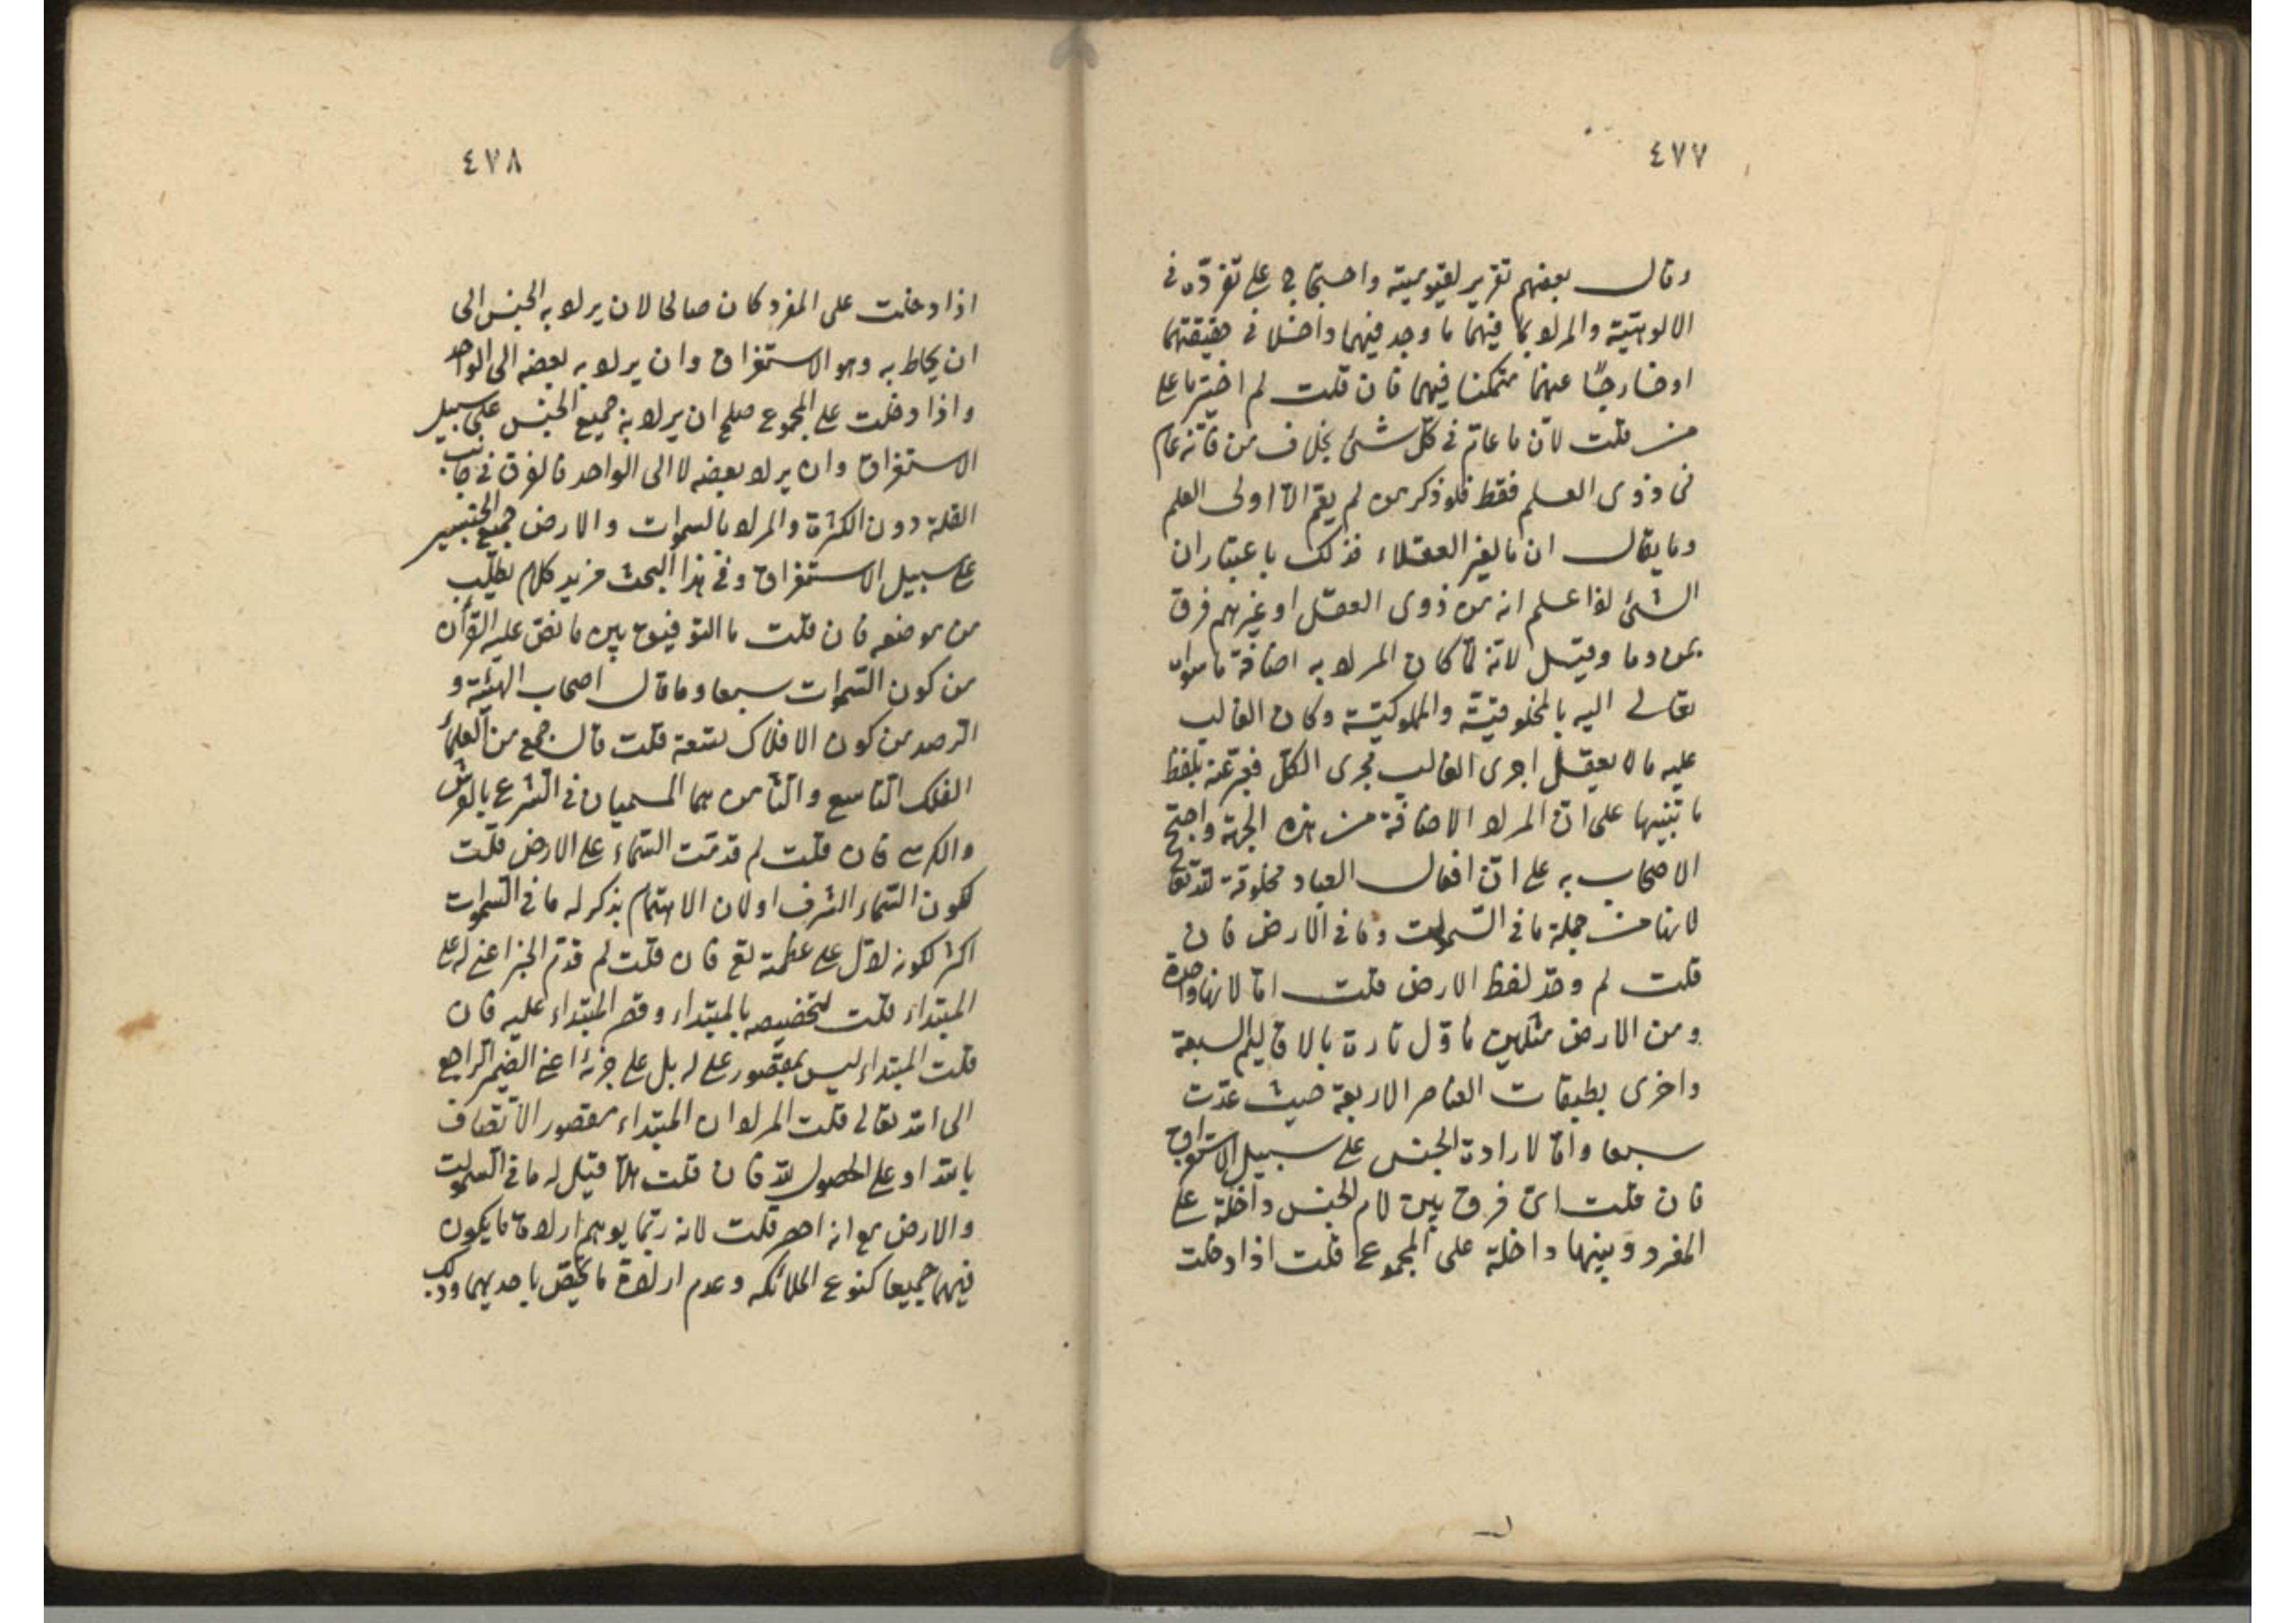 ٤٧٧
وقال بعضهم تقرير لقيوميته واحتجاج على تفرّده فى
الالوهيّة والمراد بما فيهما ما وجد فيهما داخلا فى حقيقتهما
او خارجًا عنهما متمكنا فيهما فان قلت لم اختير ما على
من قلت لانّ ما عامّ فى كلّ شئ بخلاف من فانّه عام
فى ذوى العلم فقط فلو ذكر من لم يعمّ الا اولى العلم
وما يقال ان ما لغير العقلاء فذلك باعتبار ان
الشئ اذا علم انه من ذوى العقل او غيرهم فرق
بمن وما وقيل لانّه لمّا كان المراد به اضافة ما سواه
تعالى اليه بالمخلوقيّة والمملوكيّة وكان الغالب
عليه ما لا يعقل اجرى الغالب مجرى الكلّ فعبّر عنه بلفظ
ما تنبيها على انّ المراد الاضافة من هذه الجهة واحتج
الاصحاب به على انّ افعال العباد مخلوقة لله تع
لانها من جملة ما فى السّموات وما فى الارض فان
قلت لم وحّد لفظ الارض قلت امّا لانها واحدة
ومن الارض مثلهن مأوّل تارة بالاقاليم السبعة
واخرى بطبقات العناصر الاربعة حيث عدّت
سبعا وامّا لارادة الجنس على سبيل الاستغراق
فان قلت اىّ فرق بين لام الجنس داخلة على
المفرد وبينها داخلة على المجموع قلت اذا دخلت
٤٧٨
اذا دخلت على المفرد كان صالحا لان يراد به الجنس الى
ان يحاط به وهو الاستغراق وان يراد به بعضه الى الواحد
واذا دخلت على المجموع صلح ان يراد به جميع الجنس على سبيل
الاستغراق وان يراد بعضه لا الى الواحد فالفرق فى جانب
القلة دون الكثرة والمراد بالسموات والارض جميع الجنسين
على سبيل الاستغراق وفى هذا البحث مزيد كلام يطلب
من موضعه فان قلت ما التوفيق بين ما نصّ عليه القرأن
من كون السّموات سبعا وما قال اصحاب الهيئة و
الرصد من كون الافلاك تسعة قلت قال جمع من العلمأ
الفلك التاسع والثامن هما المسميان فى الشرع بالعرش
والكرسى فان قلت لم قدمت السّماء على الارض قلت
لكون السّماء اشرف او لان الاهتمام بذكر له ما فى السّموات
اكثر لكونه ادلّ على عظمته تع فان قلت لم قدّم الخبر اعنى له على
المبتداء قلت لتخصيصه بالمبتداء وقصر المبتداء عليه فان
قلت المبتداء ليس بمقصور على له بل على جزئه اعنى الضمير الراجع
الى الله تعالى قلت المراد ان المبتداء مقصور الاتصاف
بالله او على الحصول لله فان قلت هلّا قيل له ما فى السموات
والارض مع انه اخصر قلت لانه ربّما يوهم ارادة ما يكون
فيهما جميعا كنوع الملائكه وعدم ارادة ما يختصّ باحديهما وذلك